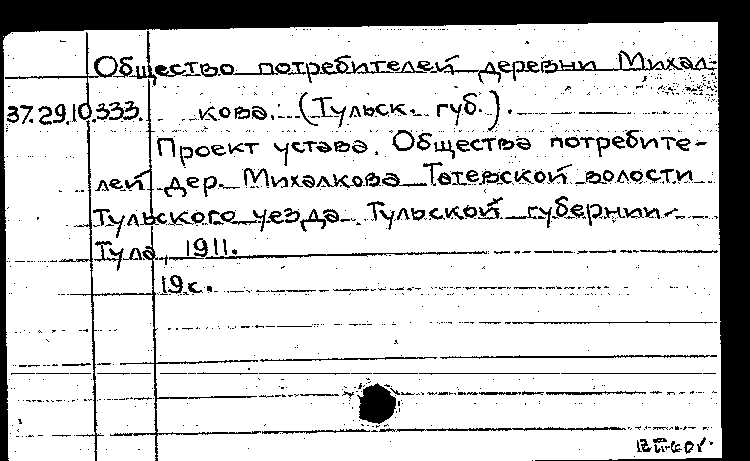 Общество потребителей деревни Михал-
37.29.10.333. кова. (Тульск. губ.).
Проект устава. Общества потребите-
лей дер. Михалкова Татевской волости
Тульского уезда Тульской губернии.
Тула, 1911.
19с.